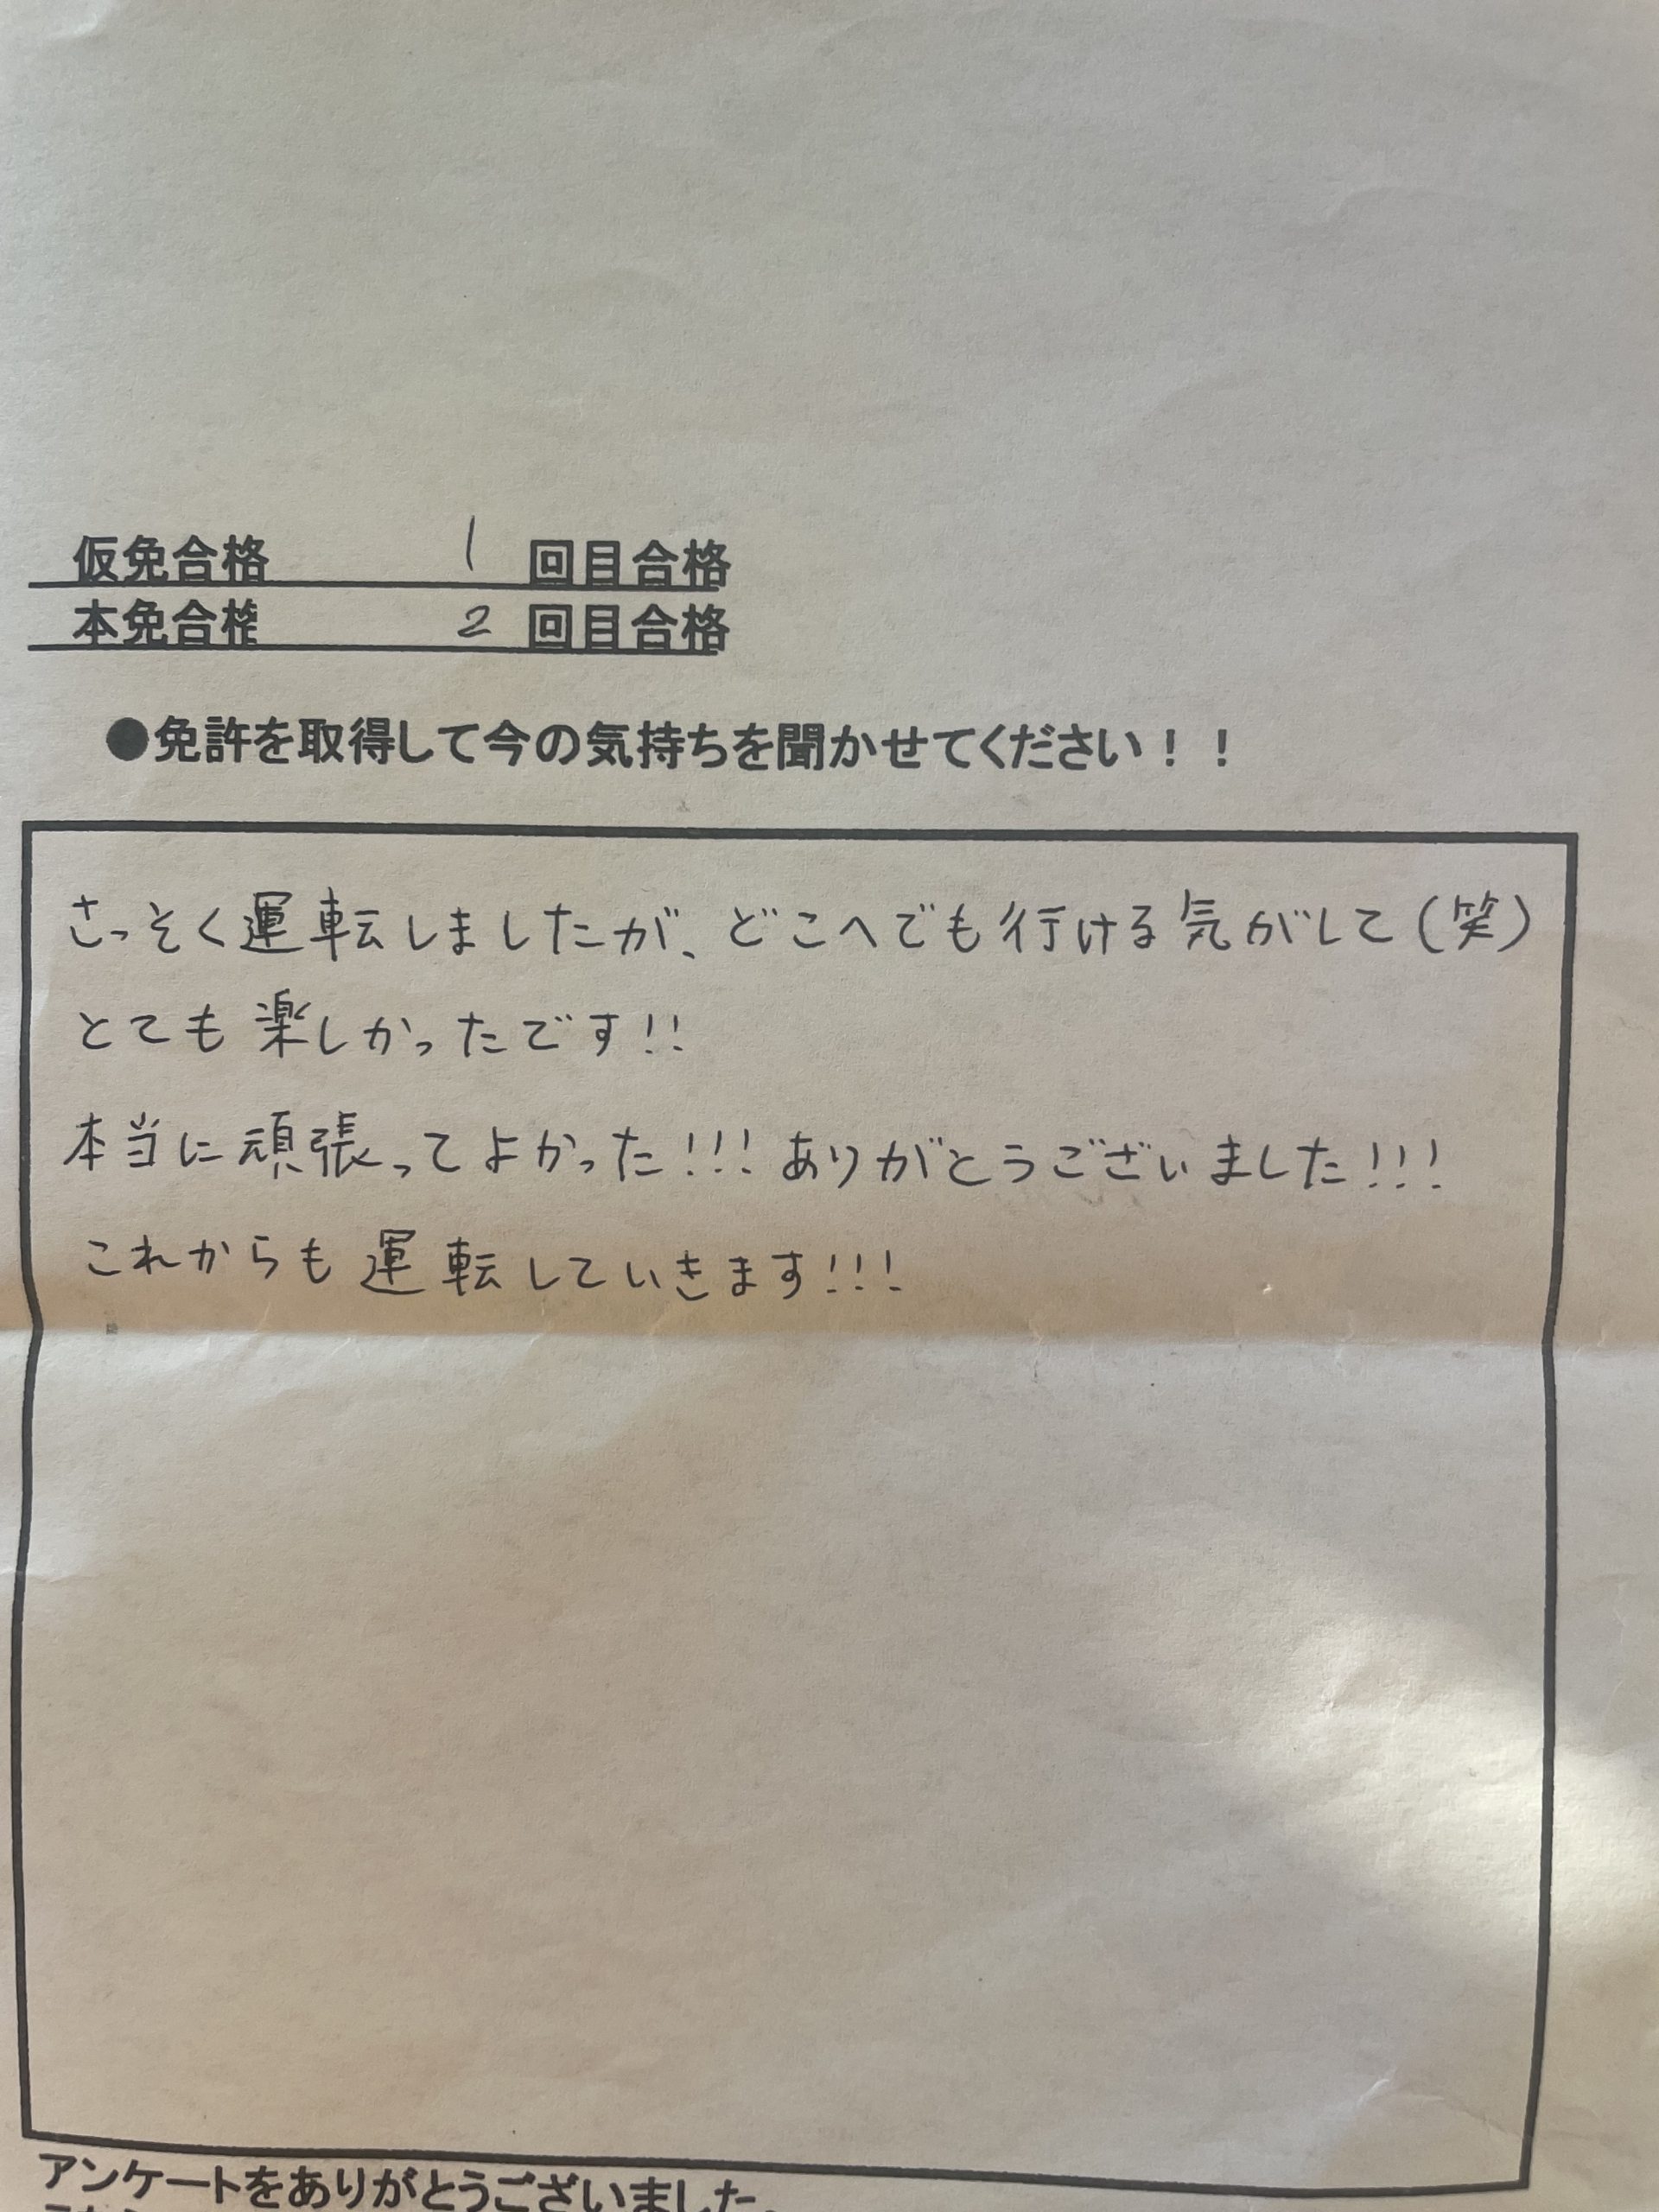 仮免合格 1 回目合格
本免合格 2 回目合格
●免許を取得して今の気持ちを聞かせてください！！
さっそく運転しましたが、どこへでも行ける気がして(笑)
とても楽しかったです!!
本当に頑張ってよかった!!!ありがとうございました!!!
これからも運転していきます!!!
アンケートをありがとうございました。